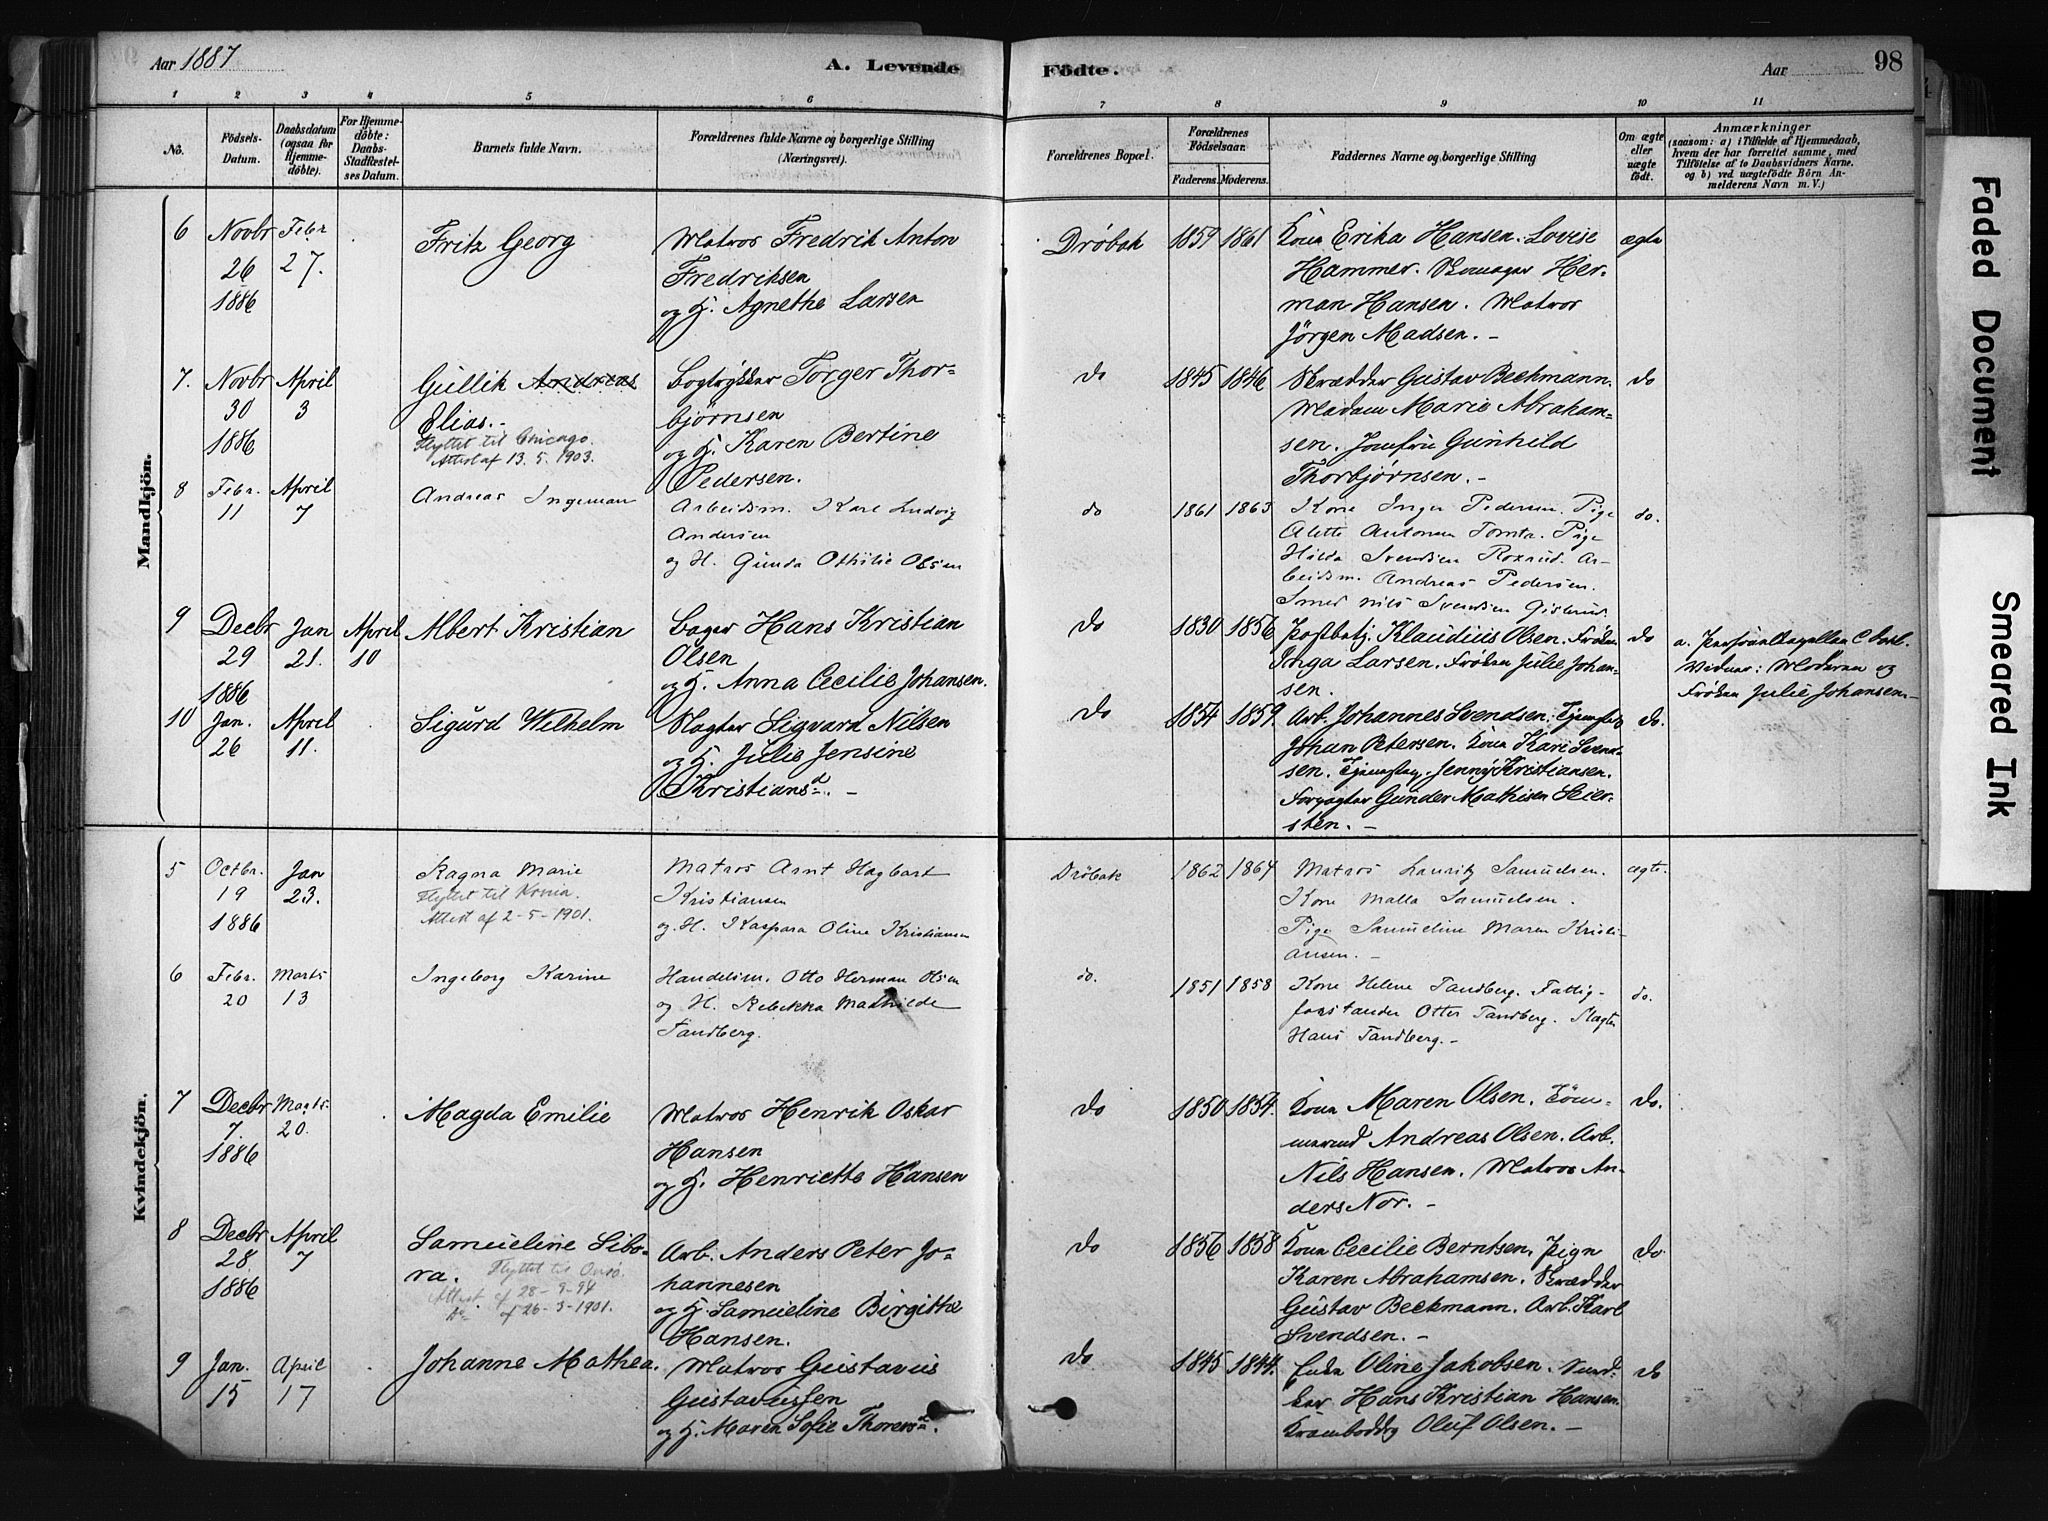 Aar 1887
A. Levende Födte.
Aar
98
1 2 3 4 5 6 7 8 9 10 11
No.
Födsels-
Datum.
Daabsdatum
(ogsaa for
Hjemme-
döbte).
For Hjemme-
döbte:
Daabs-
Stadfæstel-
ses Datum.
Barnets fulde Navn.
Forældrenes fulde Navne og borgerlige Stilling
(Næringsvei).
Forældrenes Bopæl.
Forældrenes
Födselsaar.
Faderens. Moderens.
Faddernes Navne og borgerlige Stilling
Om ægte
eller
uægte
födt.
Anmærkninger
(saasom: a) i Tilfælde af Hjemmedaab,
hvem der har forrettet samme, med
Tilföielse af to Daabsvidners Navne.
og b) ved uægtefödte Börn An-
melderens Navn m. V.)
Mandkjön.
6
Novbr
26
1886
Febr
27.
Fritz Georg
Matros Fredrik Anton
Fredriksen
og H. Agnethe Larsen
Drøbak
1859
1861
Kone Erika Hansen. Lovise
Hammer. Skomager Her-
man Hansen. Matros
Jörgen Madsen. -
ægte
7.
Novbr
30
1886
April
3
Gullik Andreas
Elias. -
Flyttet til Chicago.
Attest af 13. 5. 1903.
Bogtrykker Torger Thor-
bjørnsen
og H. Karen Bertine
Pedersen.
do
1845
1846
Skrædder Gustav Beckmann.
Madam Marie Abraham-
sen. Jomfru Gunhild
Thorbjørnsen. -
do
8
Febr.
11
April
7
Andreas Ingeman
Arbeidsm. Karl Ludvig
Andersen
og H. Gunda Othilie Olsen
do
1861
1863
Kone Inger Pedersen. Pige
Alette Antonsen Tomta. Pige
Hilda Svendsen Roxrud. Ar-
beidsm. Andreas Pedersen.
Smed Nils Svendsen
do.
9
Decbr
29
1886
Jan
21.
April
10
Albert Kristian
Bager Hans Kristian
Olsen
og H. Anna Cecilie Johansen.
do
1830
1856
Postbetj. Klaudius Olsen. Frøken
Inga Larsen. Frøken Julie Johan-
sen.
do
a.
Vidner: Moderen og
Frøken Julie Johansen. -
10
Jan.
26
April
11.
Sigurd Wilhelm
Slagter Sigvard Nilsen
og H. Julie Jensine
Kristiansd. -
do
1854
1859.
Arb. Johannes Svendsen.
Johan Petersen. Kone Kari Svend-
sen. Jenny Kristiansen.
Forpagter Gunder Mathisen Seier-
sten. -
do.
Kvindekjön.
5
Octbr.
19
1886
Jan
23.
Ragna Marie
Flyttet til Kr.nia.
Attest af 2-5-1901.
Matros Arnt Hagbart
Kristiansen
og H. Kaspara Oline Kristiansen
Drøbak
1862
1864
Matros Lauritz Samuelsen.
Kone Malla Samuelsen.
Pige Samueline Maren Kristi-
ansen. -
ægte.
6
Febr.
20
Marts
13
Ingeborg Karine
Handelsm. Otto Herman Olsen
og H. Rebekka Mathilde
Tandberg.
do.
1851
1858
Kone Helene Tandberg. Fattig-
forstander Otter Tandberg. Slagter
Hans Tandberg. -
do.
7
Decbr
7.
1886
Marts.
20.
Magda Emilie
Matros Henrik Oskar
Hansen
og H. Henriette Hansen
do
1850
1854.
Kone Maren Olsen. Tøm-
mermd Andreas Olsen. Arb.
Nils Hansen. Matros An-
ders Nor. -
do.
8
Decbr
28.
1886
April
7
Samueline Sebo-
ra.
Flyttet til Onsø.
Attest af 28-9-94
Do af 26-3-1901.
Arb. Anders Peter Jo-
hannesen
og H. Samueline Birgitte
Hansen.
do
1856
1858
Kone Cecilie Berntsen. Pigen
Karen Abrahamsen. Skrædder
Gustav Beckmann. Arb. Karl
Svendsen. -
do.
9
Jan.
15
April
17
Johanne Mathea.
Matros Gustavus
Gustavussen
og H. Maren Sofie Thoresd.
do
1845
1844.
Enke Oline Jakobsen. Sned-
ker Hans Kristian Hansen.
Oluf Olsen. -
do
Faded Document
Smeared Ink